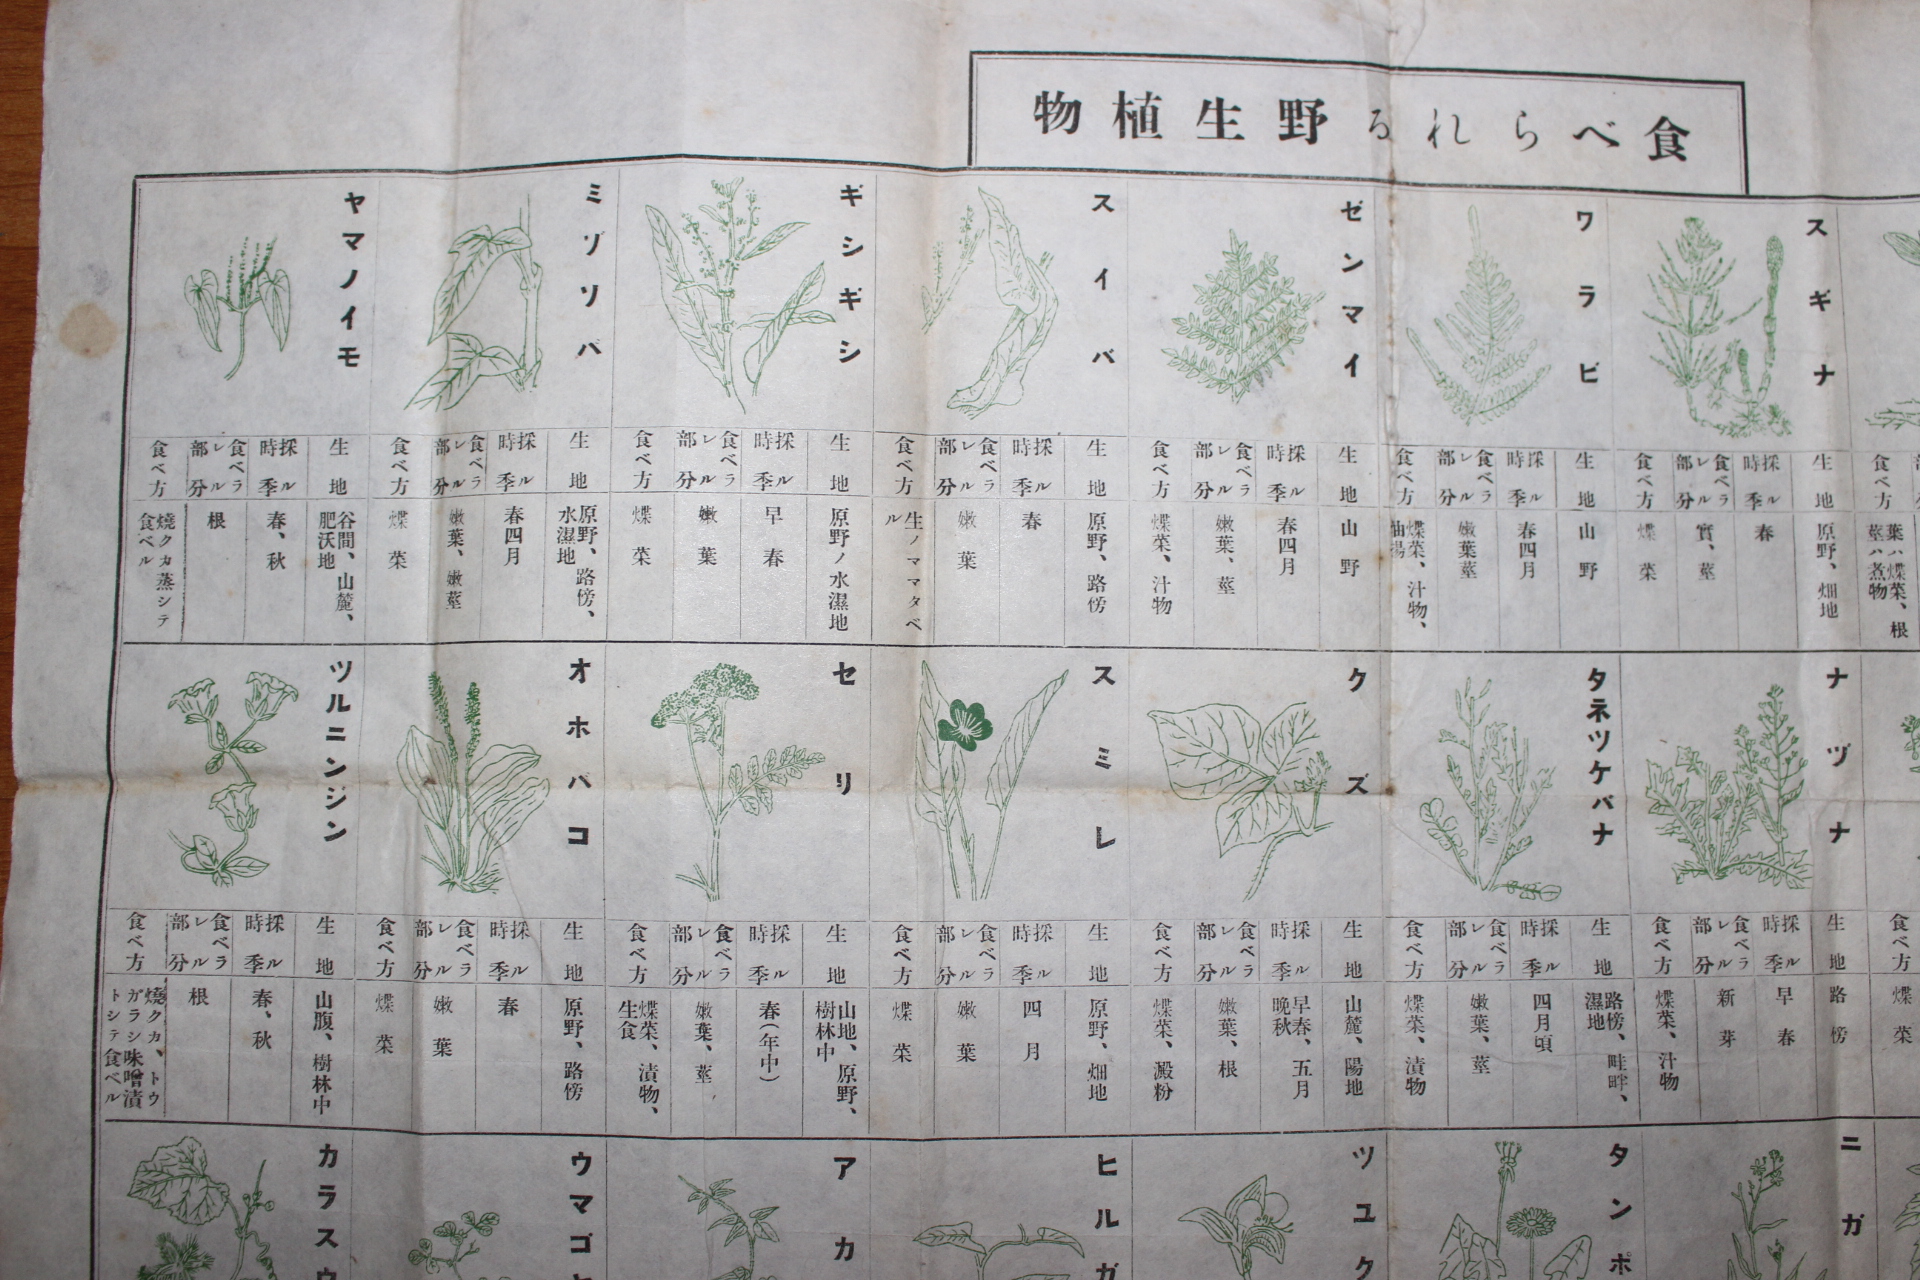 食べられる野生植物
スギナ
生地
原野、畑地
採ル時季
春
食ベラレル部分
實、莖
食べ方
煠菜
ワラビ
生地
山野
採ル時季
春四月
食ベラレル部分
嫩葉莖
食べ方
煠菜、汁物、
油揚
ゼンマイ
生地
山野
採ル時季
春四月
食ベラレル部分
嫩葉、莖
食べ方
煠菜、汁物
スイバ
生地
原野、路傍
採ル時季
春
食ベラレル部分
嫩葉
食べ方
生ノママタベ
ル
ギシギシ
生地
原野ノ水濕地
採ル時季
早春
食ベラレル部分
嫩葉
食べ方
煠菜
ミゾソバ
生地
原野、路傍、
水濕地
採ル時季
春四月
食ベラレル部分
嫩葉、嫩莖
食べ方
煠菜
ヤマノイモ
生地
谷間、山麓、
肥沃地
採ル時季
春、秋
食ベラレル部分
根
食べ方
燒クカ蒸シテ
食ベル
食べ方
葉ハ煠菜、根
莖ハ煮物
ナヅナ
生地
路傍
採ル時季
早春
食ベラレル部分
新芽
食べ方
煠菜、汁物
タネツケバナ
生地
路傍、畦畔、
濕地
採ル時季
四月頃
食ベラレル部分
嫩葉、莖
食べ方
煠菜、漬物
クズ
生地
山麓、陽地
採ル時季
早春、五月
晩秋
食ベラレル部分
嫩葉、根
食べ方
煠菜、澱粉
スミレ
生地
原野、畑地
採ル時季
四月
食ベラレル部分
嫩葉
食べ方
煠菜
セリ
生地
山地、原野、
樹林中
採ル時季
春(年中)
食ベラレル部分
嫩葉、莖
食べ方
煠菜、漬物、
生食
オホバコ
生地
原野、路傍
採ル時季
春
食ベラレル部分
嫩葉
食べ方
煠菜
ツルニンジン
生地
山腹、樹林中
採ル時季
春、秋
食ベラレル部分
根
食べ方
燒クカ、トウ
ガラシ味噌漬
トシテ食ベル
食べ方
煠菜
ニガ
タンポ
ツユク
ヒルガ
アカ
ウマゴ
カラスウ